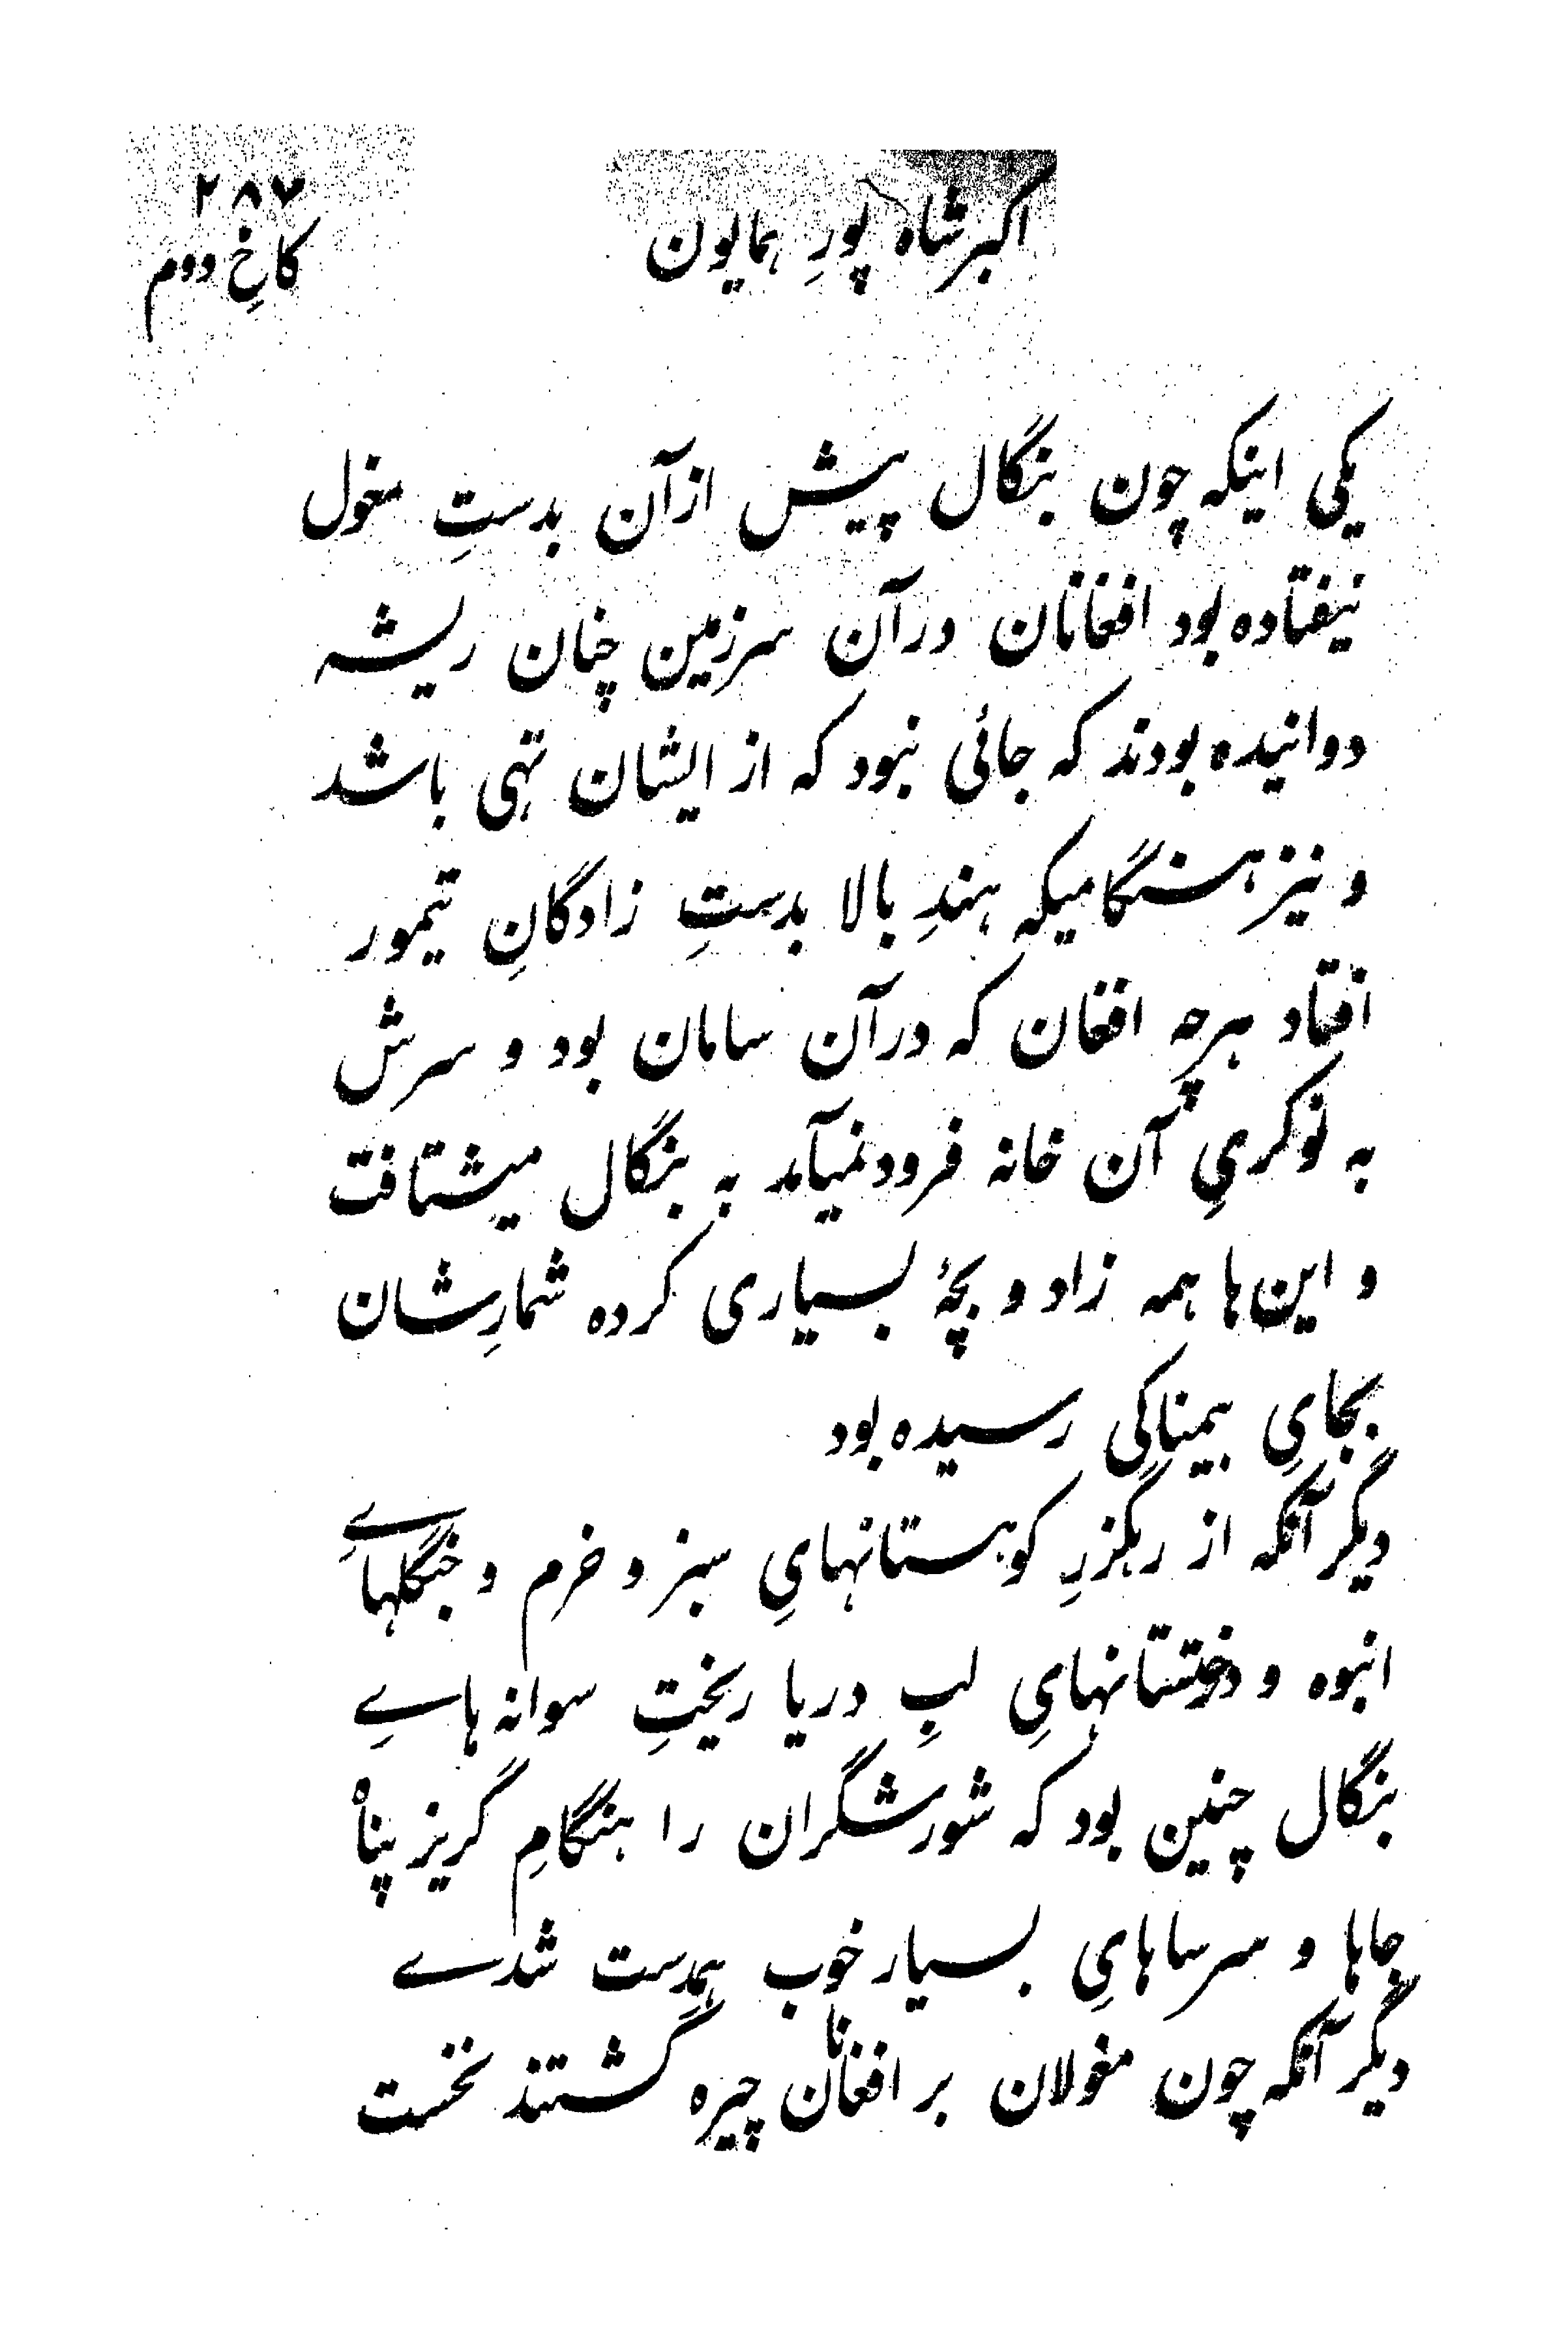 ۲۸۷
اکبرشاه پورِ همایون
کاخِ دوم
یکی اینکه چون بنگال پیش ازآن بدستِ مغول
نیفتاده بود افغانان درآن سرزمین چنان ریشه
دوانیده بودند که جائی نبود که از ایشان تهی باشد
و نیز هنگامیکه هندِ بالا بدستِ زادگانِ تیمور
افتاد هرچه افغان که درآن سامان بود و سرش
به نوکریِ آن خانه فرود نمیآمد به بنگال میشتافت
و این‌ها همه زاد و بچۀ بسیاری کرده شمارِشان
بجایِ بیمناکی رسیده بود
دیگر آنکه از رهگزرِ کوهستانهایِ سبز و خرم و جنگلهایِ
انبوه و درختستانهایِ لبِ دریا ریختِ سوانه هایِ
بنگال چنین بود که شورشگران را هنگامِ گریز پناه
جاها و سرساهایِ بسیار خوب بهمدست شدے
دیگر آنکه چون مغولان بر افغانان چیره گشتند نخست